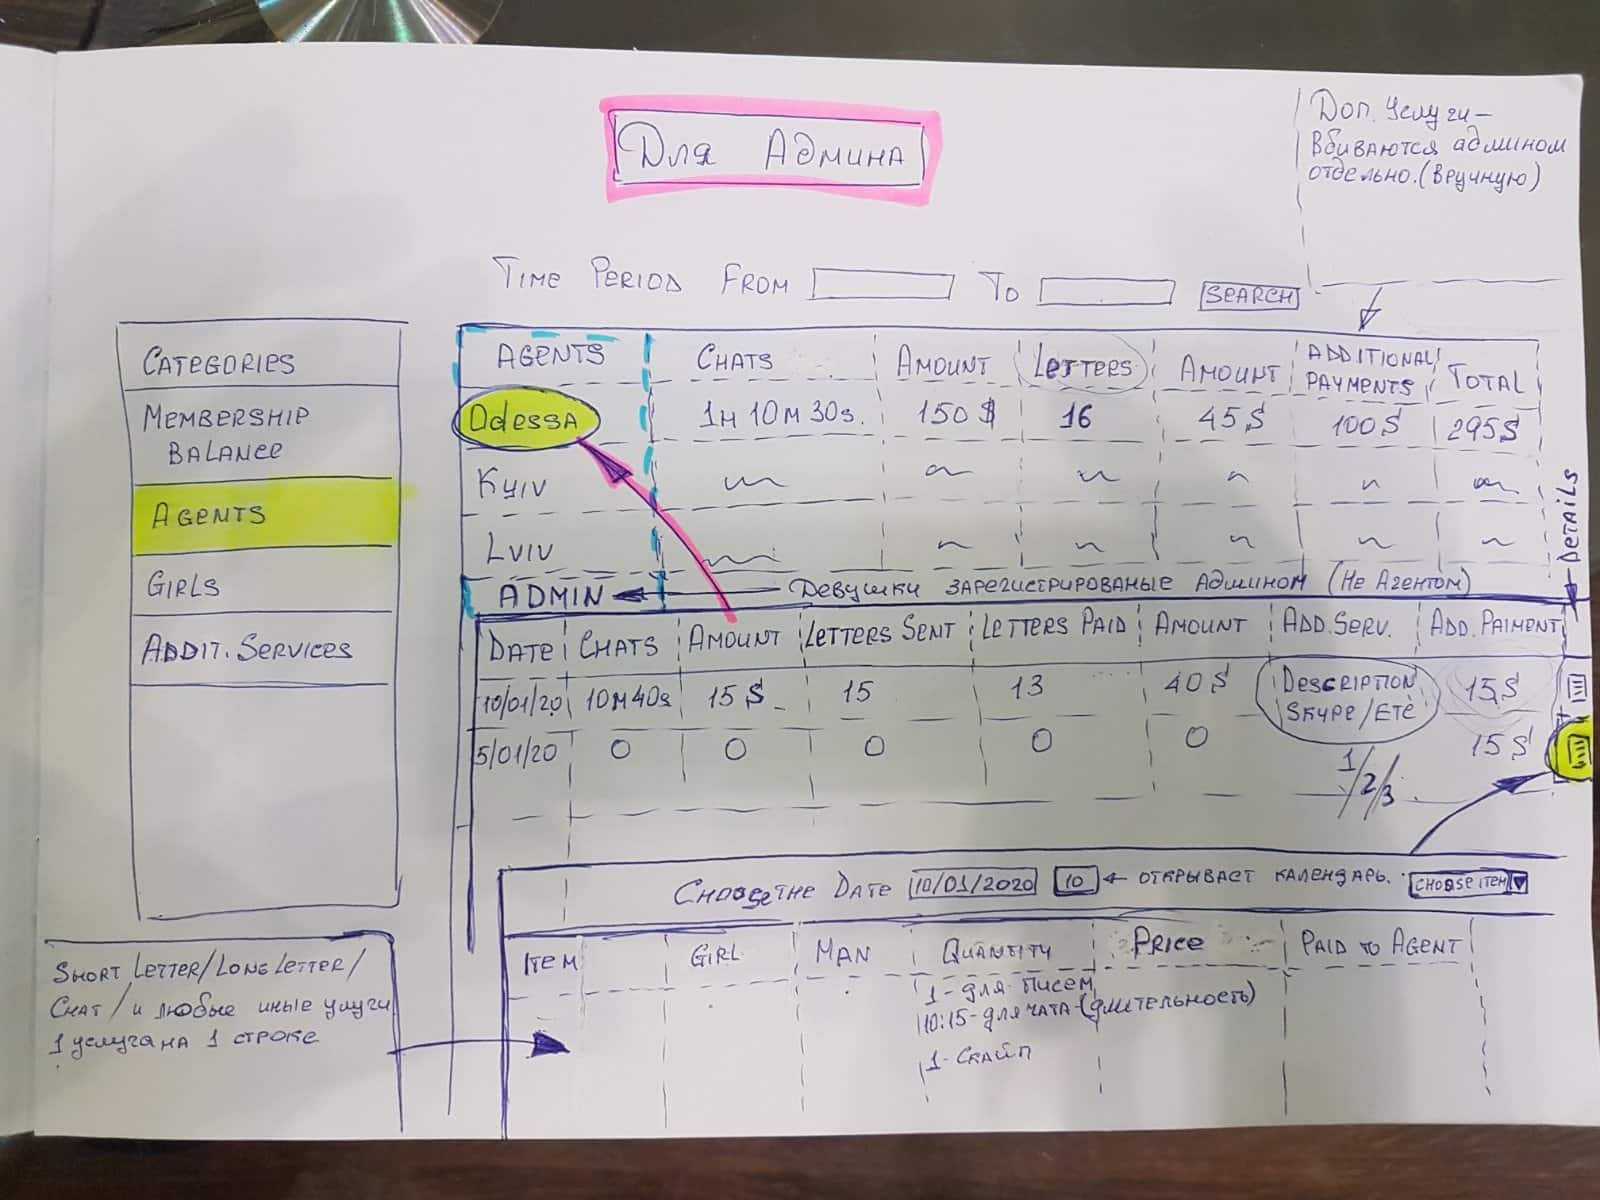 Для Админа
Доп. Услуги –
Вбиваются админом
отдельно. (Вручную)
TIME PERIOD FROM TO SEARCH
CATEGORIES
MEMBERSHIP
BALANCE
AGENTS
GIRLS
ADDIT. SERVICES
AGENTS CHATS AMOUNT LETTERS AMOUNT ADDITIONAL PAYMENTS TOTAL
Odessa 1H 10M 30s. 150$ 16 45$ 100$ 295$
Kyiv
Lviv
ADMIN Девушки зарегистрированые Админом (Не Агентом)
Details
DATE CHATS AMOUNT LETTERS SENT LETTERS PAID AMOUNT ADD. SERV. ADD. PAIMENT
10/01/20 10M40s 15$ 15 13 40$ DESCRIPTION SKYPE/ETC 15$
5/01/20 0 0 0 0 0 1/2/3 15$
CHOOSE THE DATE 10/01/2020 10 ← открываст календарь. CHOOSE ITEM
ITEM GIRL MAN QUANTITY PRICE PAID TO AGENT
1- для писем
10:15-для чата-(длительность)
1- Скайп
SHORT LETTER/LONG LETTER/
CHAT/и любые иные услуги
1 услуга на 1 строке